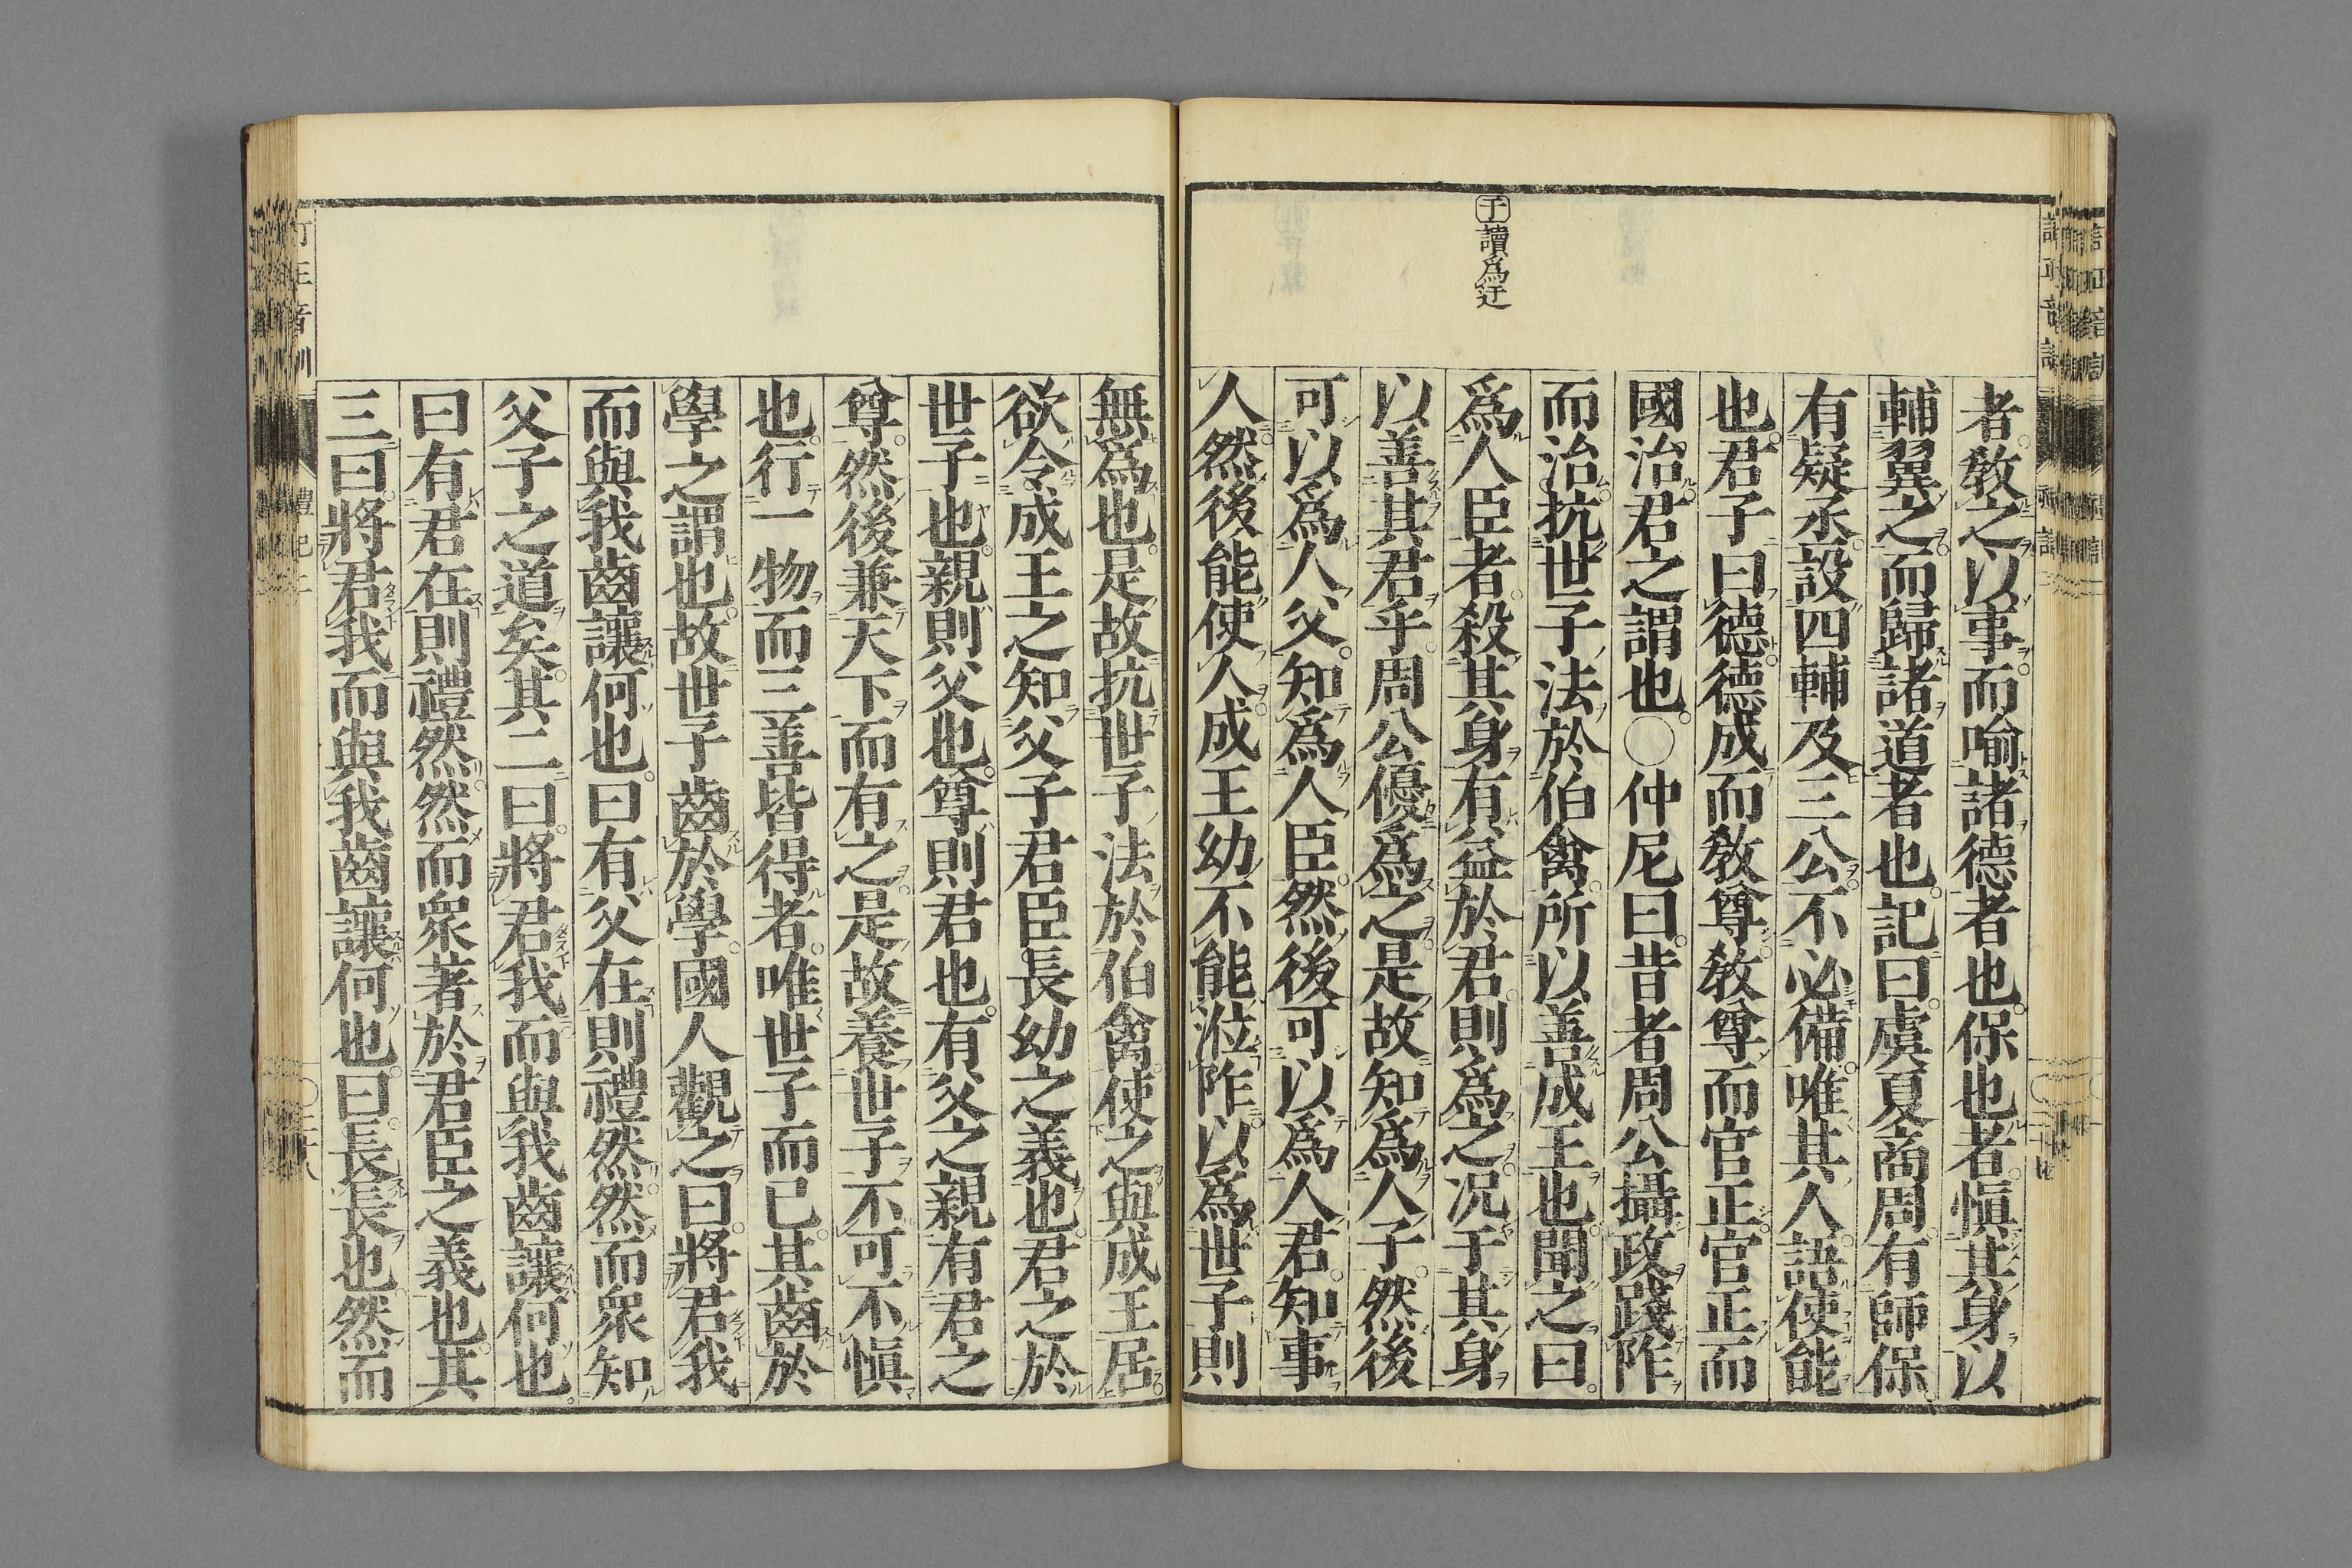 者教之以事而喻諸德者也保也者愼其身以
輔翼之而歸諸道者也記曰虞夏商周有師保
有疑丞設四輔及三公不必備唯其人語使能
也君子曰德德成而敎尊敎尊而官正官正而
國治君之謂也○仲尼曰昔者周公攝政踐阼
而治抗世子法於伯禽所以善成王也聞之曰
爲人臣者殺其身有益於君則爲之況于其身
于讀爲迂
以善其君乎周公優爲之是故知爲人子然後
可以爲人父知爲人臣然後可以爲人君知事
人然後能使人成王幼不能涖阼以爲世子則
無爲也是故抗世子法於伯禽使之與成王居
欲令成王之知父子君臣長幼之義也君之於
世子也親則父也尊則君也有父之親有君之
尊然後兼天下而有之是故養世子不可不愼
也行一物而三善皆得者唯世子而已其齒於
學之謂也故世子齒於學國人觀之曰將君我
而與我齒讓何也曰有父在則禮然然而眾知
父子之道矣其二曰將君我而與我齒讓何也
曰有君在則禮然然而眾著於君臣之義也其
三曰將君我而與我齒讓何也曰長長也然而